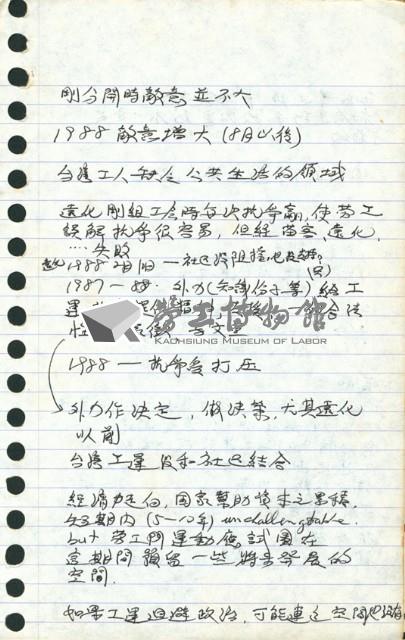 剛分開時敵意並不大
1988 敵意增大 (8月以後)
台灣工人缺乏公共生活的領域
遠化剛組工會時每次抗爭贏, 使勞工
誤解抗爭很容易, 但經苗客、遠化、
.... 失敗
遠化 1988 2月1日 — 社區沒阻擋,
1987 — 外力(知識份子等) 給工
運
性
勞工博物館
KAOHSIUNG MUSEUM OF LABOR
1988 — 抗爭受打压
外力作決定, 做決策, 尤其遠化
以前
台灣工運沒和社區結合
經濟走向, 國家幫助資本之累積,
短期內 (5-10年) unchallengtable.
but 勞工鬥運動應試圖在
這期間預留一些將來發展的
空間.
如果工運迴避政治, 可能連这空間也沒有